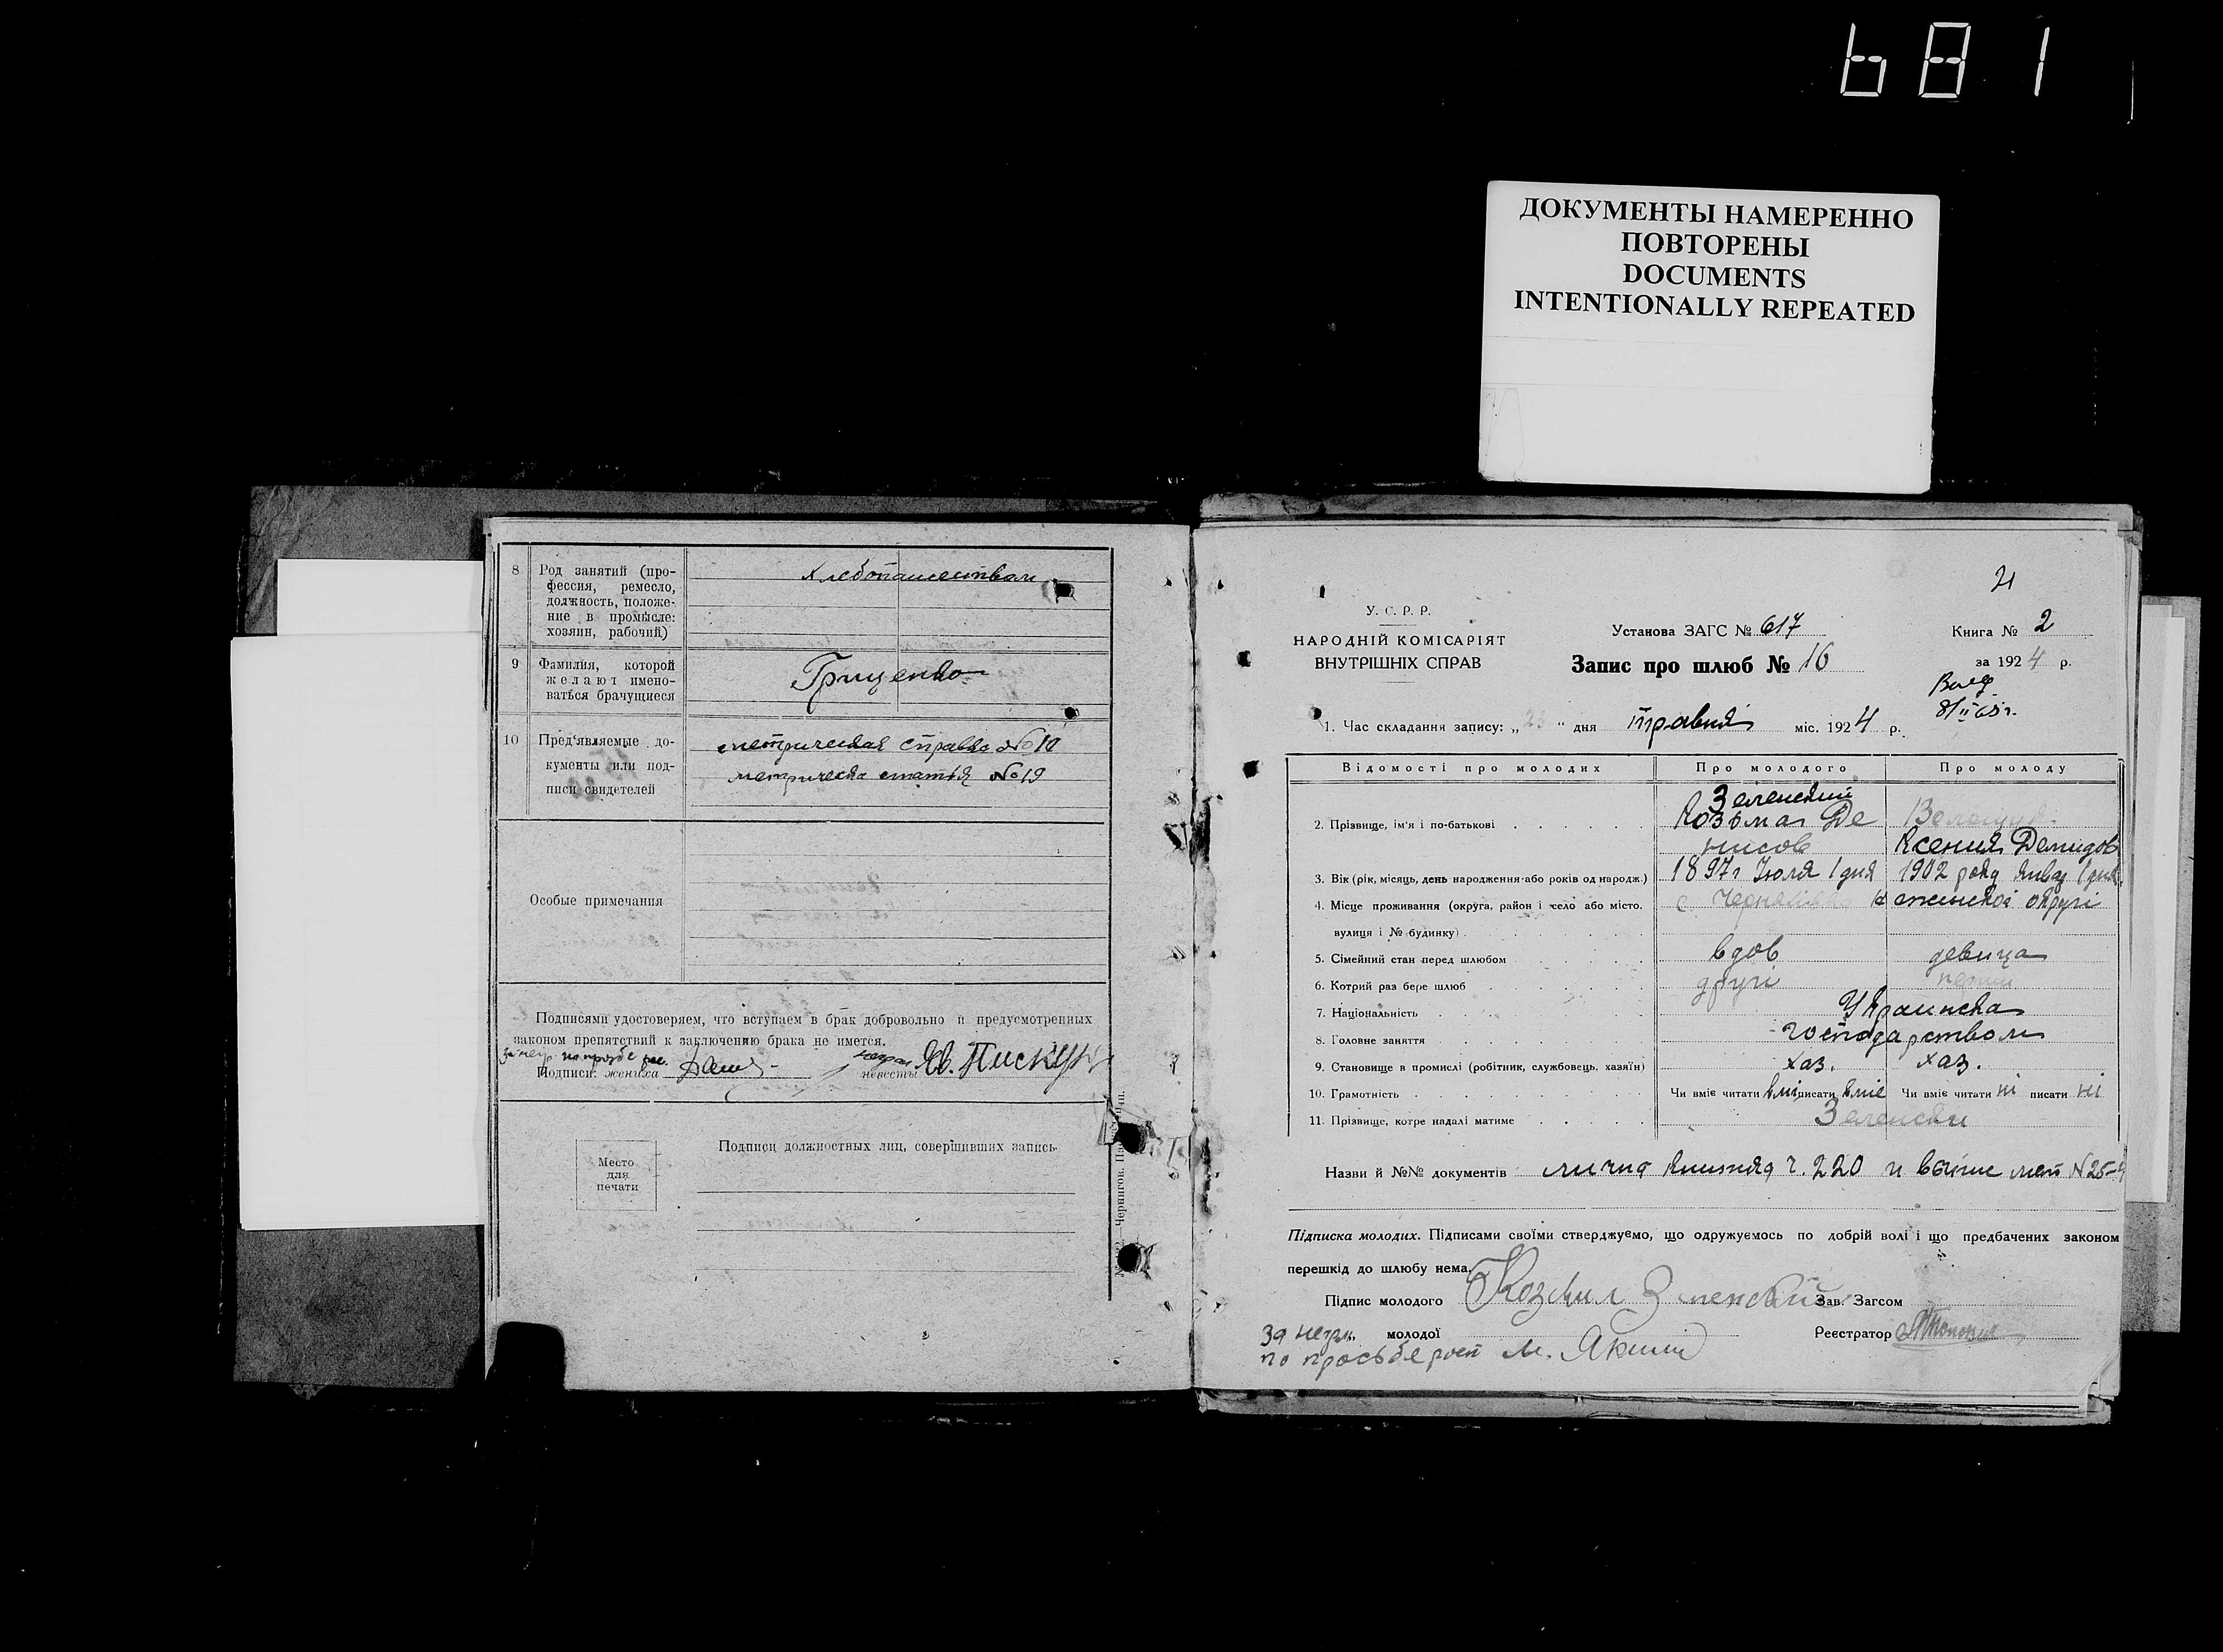 681
ДОКУМЕНТЫ НАМЕРЕННО
ПОВТОРЕНЫ
DOCUMENTS
INTENTIONALLY REPEATED
8 Род занятий (про-
фессия, ремесло,
должность, положе-
ние в промысле:
хозяин, рабочий)
хлебопашеством
9 Фамилия, которой
желают имено-
ваться брачущиеся
Грищенко
10 Пред'являемые до-
кументы или под-
писи свидетелей
метрическая справка №10
метрическа статья №19
Особые примечания
Подписями удостоверяем, что вступаем в брак добровольно и предусмотренных
законом препятствий к заключению брака не имется.
Подписи: жениха
невесты Пискун
Место
для
печати
Подписи должностных лиц, совершивших запись.
21
У. С. Р. Р.
НАРОДНІЙ КОМІСАРІЯТ
ВНУТРІШНІХ СПРАВ
Установа ЗАГС № 617
Запис про шлюб № 16
Книга № 2
за 1924 р.
1. Час складання запису: „23“ дня травня міс. 1924 р.
Відомості про молодих Про молодого Про молоду
2. Прізвище, ім'я і по-батькові
Зеленский
Козьма Де
нисов
Ксения Демидов
3. Вік (рік, місяць, день народження або років од народж.) 1897 г Июля 1 дня 1902 року янва 1 дня
4. Місце проживання (округа, район і село або місто, с округі
вулиця і № будинку)
5. Сімейний стан перед шлюбом вдов девица
6. Котрий раз бере шлюб другі перши
7. Національність Украинска
8. Головне заняття господарством
9. Становище в промислі (робітник, службовець, хазяїн) хаз. хаз.
10. Грамотність Чи вміє читати вміє писати вміє Чи вміє читати ні писати ні
11. Прізвище, котре надалі матиме Зеленски
Назви й №№ документів лична книжка ч. 220 и №25
Підписка молодих. Підписами своїми стверджуємо, що одружуємось по добрій волі і що предбачених законом
перешкід до шлюбу нема.
Підпис молодого Козмил Зеленский Зав. Загсом
за негр. молодої
Реєстратор
по просьбе рост М. Якими